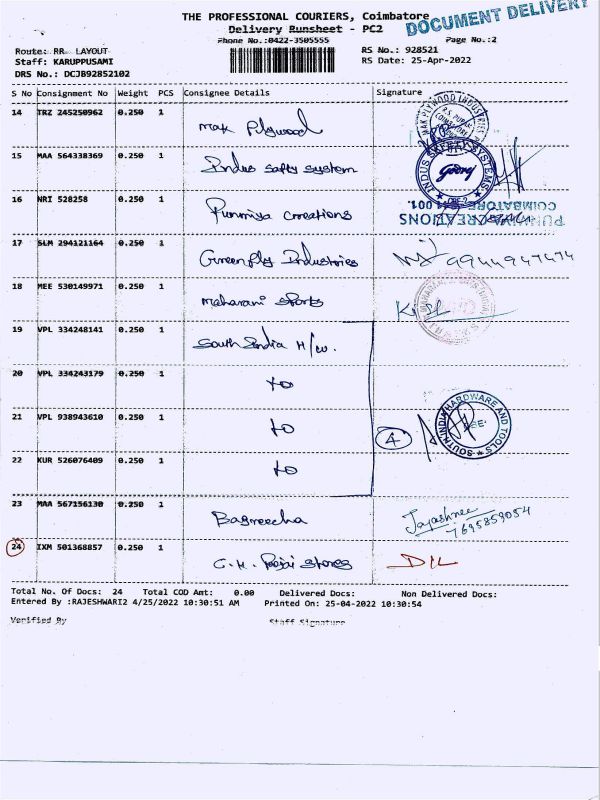 THE PROFESSIONAL COURIERS, Coimbatore
DOCUMENT DELIVERY
Delivery Runsheet - PC2
Phone No.:0422-3505555
Page No.:2
Route: RR LAYOUT
RS No.: 928521
Staff: KARUPPUSAMI
RS Date: 25-Apr-2022
DRS No.: DCJB92852102
S No Consignment No Weight PCS Consignee Details Signature
14 TRZ 245250962 0.250 1 Mak Plywood
MAK PLYWOOD INDUSTRIES
15 MAA 564338369 0.250 1 Indus safty system
INDUS SAFETY SYSTEMS
Godrej
CBE-2
16 NRI 528258 0.250 1 Punmiya creations
PUNMIYA CREATIONS
COIMBATORE - 641 001.
17 SLM 294121164 0.250 1 Greenply Industries 9944947474
18 MEE 530149971 0.250 1 Maharani sports
19 VPL 334248141 0.250 1 South India H/w.
20 VPL 334243179 0.250 1 to
21 VPL 938943610 0.250 1 to 4
SOUTH INDIA HARDWARE AND TOOLS
CBE
22 KUR 526076409 0.250 1 to
23 MAA 567156130 0.250 1 Bagreecha Jayashree
7695859054
24 IXM 501368857 0.250 1 D/L
Total No. Of Docs: 24 Total COD Amt: 0.00 Delivered Docs: Non Delivered Docs:
Entered By :RAJESHWARI2 4/25/2022 10:30:51 AM Printed On: 25-04-2022 10:30:54
Verified By Staff Signature